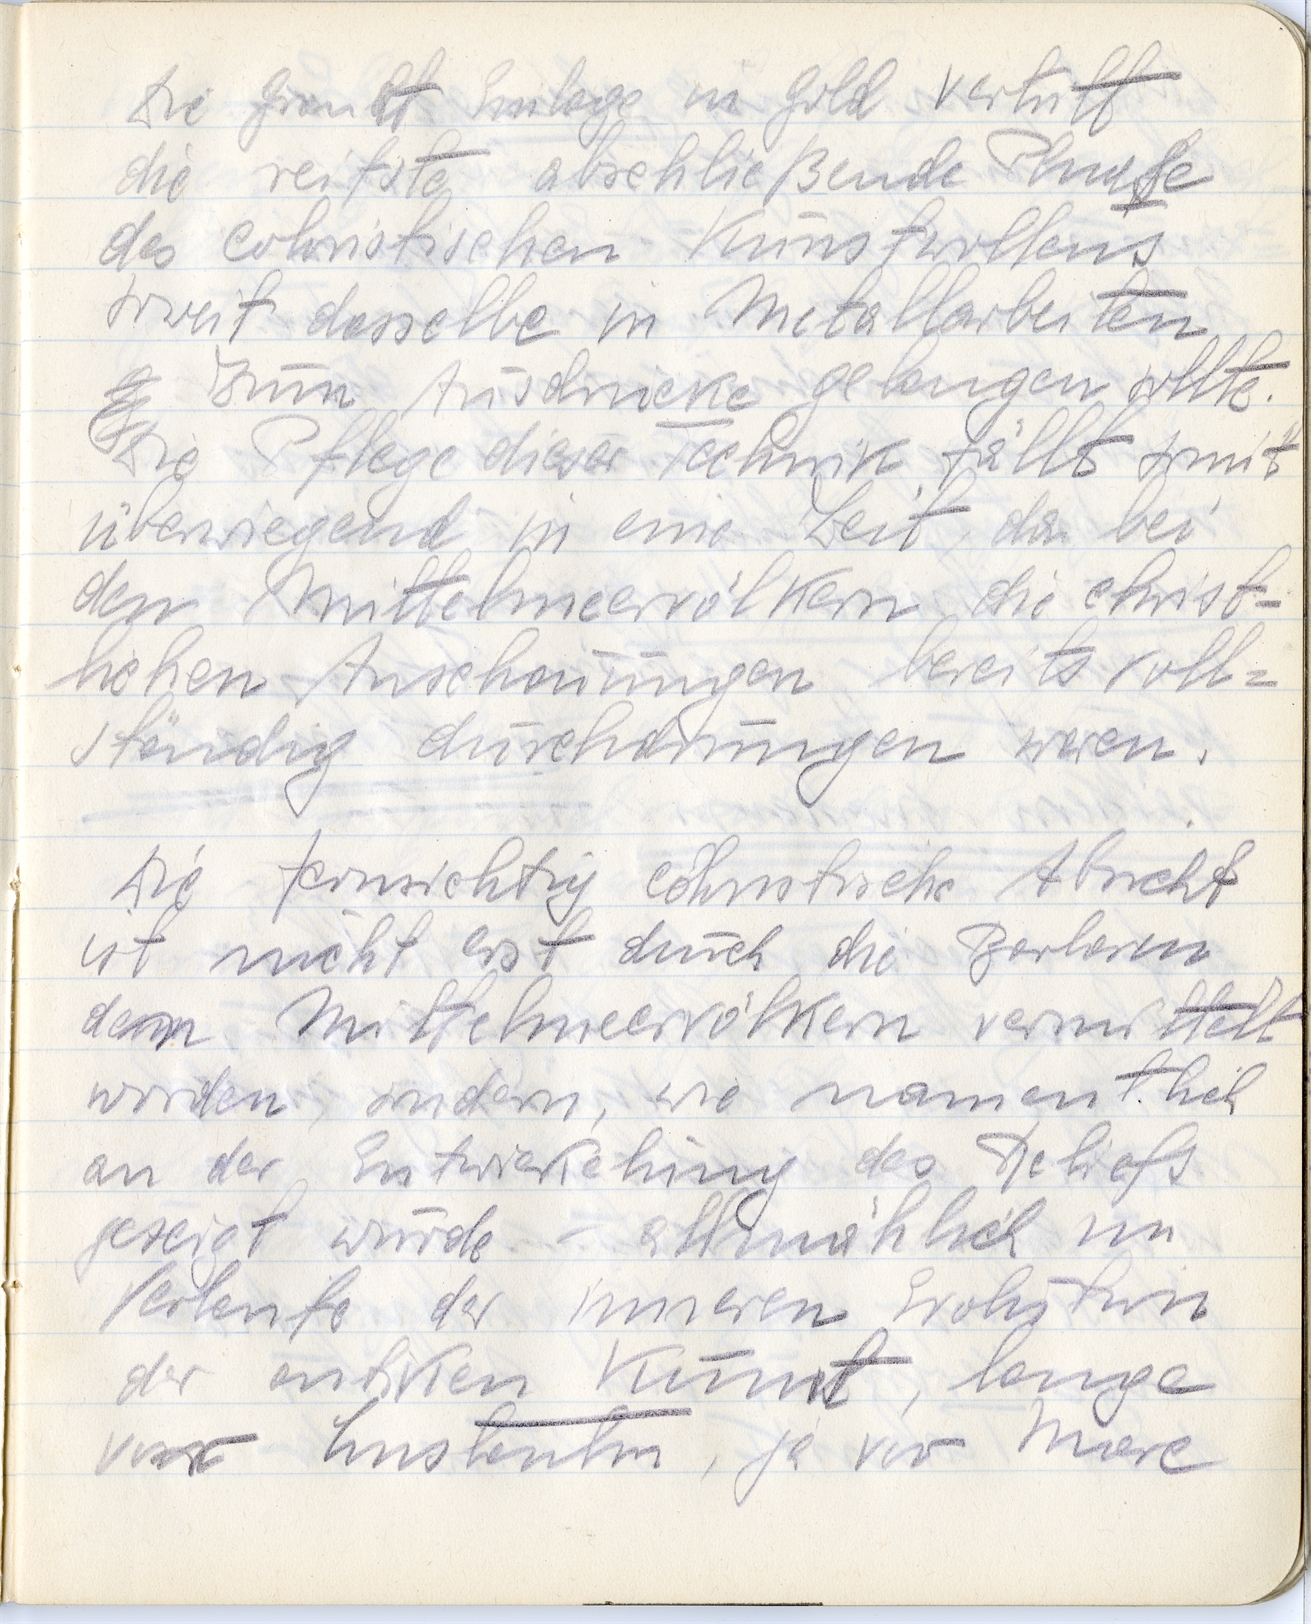 Die Granat Einlage in Gold vertritt
die reifste abschließende Phase
des coloristischen Kunstwollens
soweit dasselbe in Metallarbeiten
zum Ausdrucke gelangen sollte.
Die Pflege dieser Technik fällt somit
überwiegend in eine Zeit, da bei
den Mittelmeervölkern die christ=
lichen Anschauungen bereits voll=
ständig durchdrungen waren.
Die fernsichtig coloristische Absicht
ist nicht erst durch die Barbaren
den Mittelmeervölkern vermittelt
worden, sondern, wie namentlich
an der Entwickelung des Reliefs
gezeigt wurde – allmählich im
Verlaufe der inneren Evolution
der antiken Kunst, lange
vor Constantin, ja vor Marc